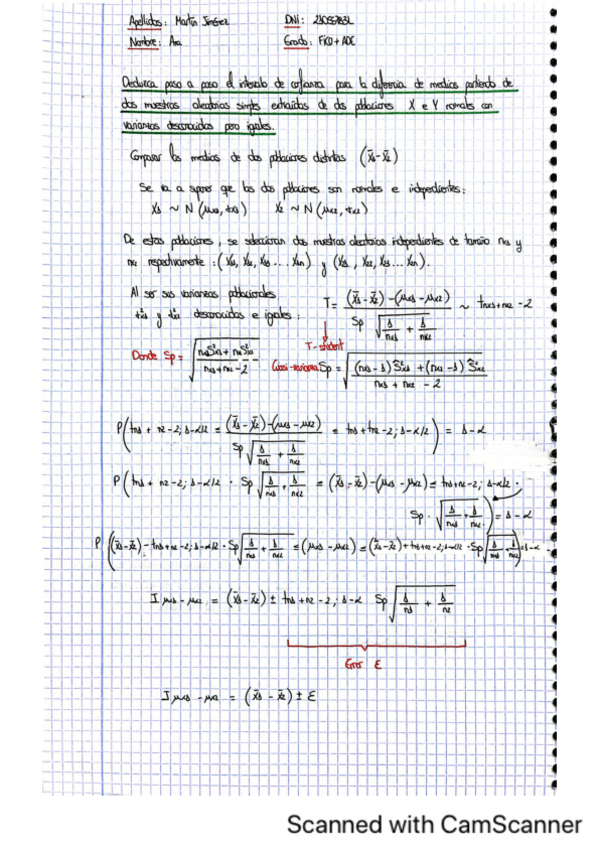 Apellidos: Martín Jiménez DNI:
Nombre: Ana Grado: FICO + ADE
Deduzca paso a paso el intervalo de confianza para la diferencia de medias partiendo de
dos muestras aleatorias simples extraidas de dos poblaciones X e Y normales con
varianzas desconocidas pero iguales.
Comparar las medias de dos poblaciones distintas (x̄1 - x̄2)
Se va a suponer que las dos poblaciones son normales e independientes:
X1 ~ N (μx1, σx1) X2 ~ N (μx2, σx2)
De estas poblaciones, se seleccionan dos muestras aleatorias independientes de tamaño nx1 y
nx2 respectivamente: (X11, X12, X13 ... X1n) y (X21, X22, X23 ... X2n).
Al ser sus varianzas poblacionales
σ²x1 y σ²x2 desconocidas e iguales:
T = (x̄1 - x̄2) - (μx1 - μx2) / Sp √ 1/nx1 + 1/nx2 ~ tnx1+nx2 - 2
T-student
Donde Sp = √ nx1S²x1 + nx2S²x2 / nx1 + nx2 - 2
Cuasi-varianza Sp = √ (nx1 - 1) Ŝ²x1 + (nx2 - 1) Ŝ²x2 / nx1 + nx2 - 2
P( tn1 + n2 - 2; 1-α/2 = (x̄1 - x̄2) - (μx1 - μx2) / Sp √ 1/nx1 + 1/nx2 = tn1 + n2 - 2; 1-α/2 ) = 1-α
P( tn1 + n2 - 2; 1-α/2 · Sp √ 1/nx1 + 1/nx2 = (x̄1 - x̄2) - (μx1 - μx2) = tn1+n2-2; 1-α/2 ·
Sp · √ 1/nx1 + 1/nx2 ) = 1-α
P ( (x̄1 - x̄2) - tn1+n2-2; 1-α/2 · Sp √ 1/nx1 + 1/nx2 = (μx1 - μx2) = (x̄1 - x̄2) + tn1+n2-2; 1-α/2 · Sp √ 1/nx1 + 1/nx2 ) = 1-α
I μx1 - μx2 = (x̄1 - x̄2) ± tn1 + n2 - 2; 1-α Sp √ 1/n1 + 1/n2
Error ε
I μx1 - μx2 = (x̄1 - x̄2) ± ε
Scanned with CamScanner